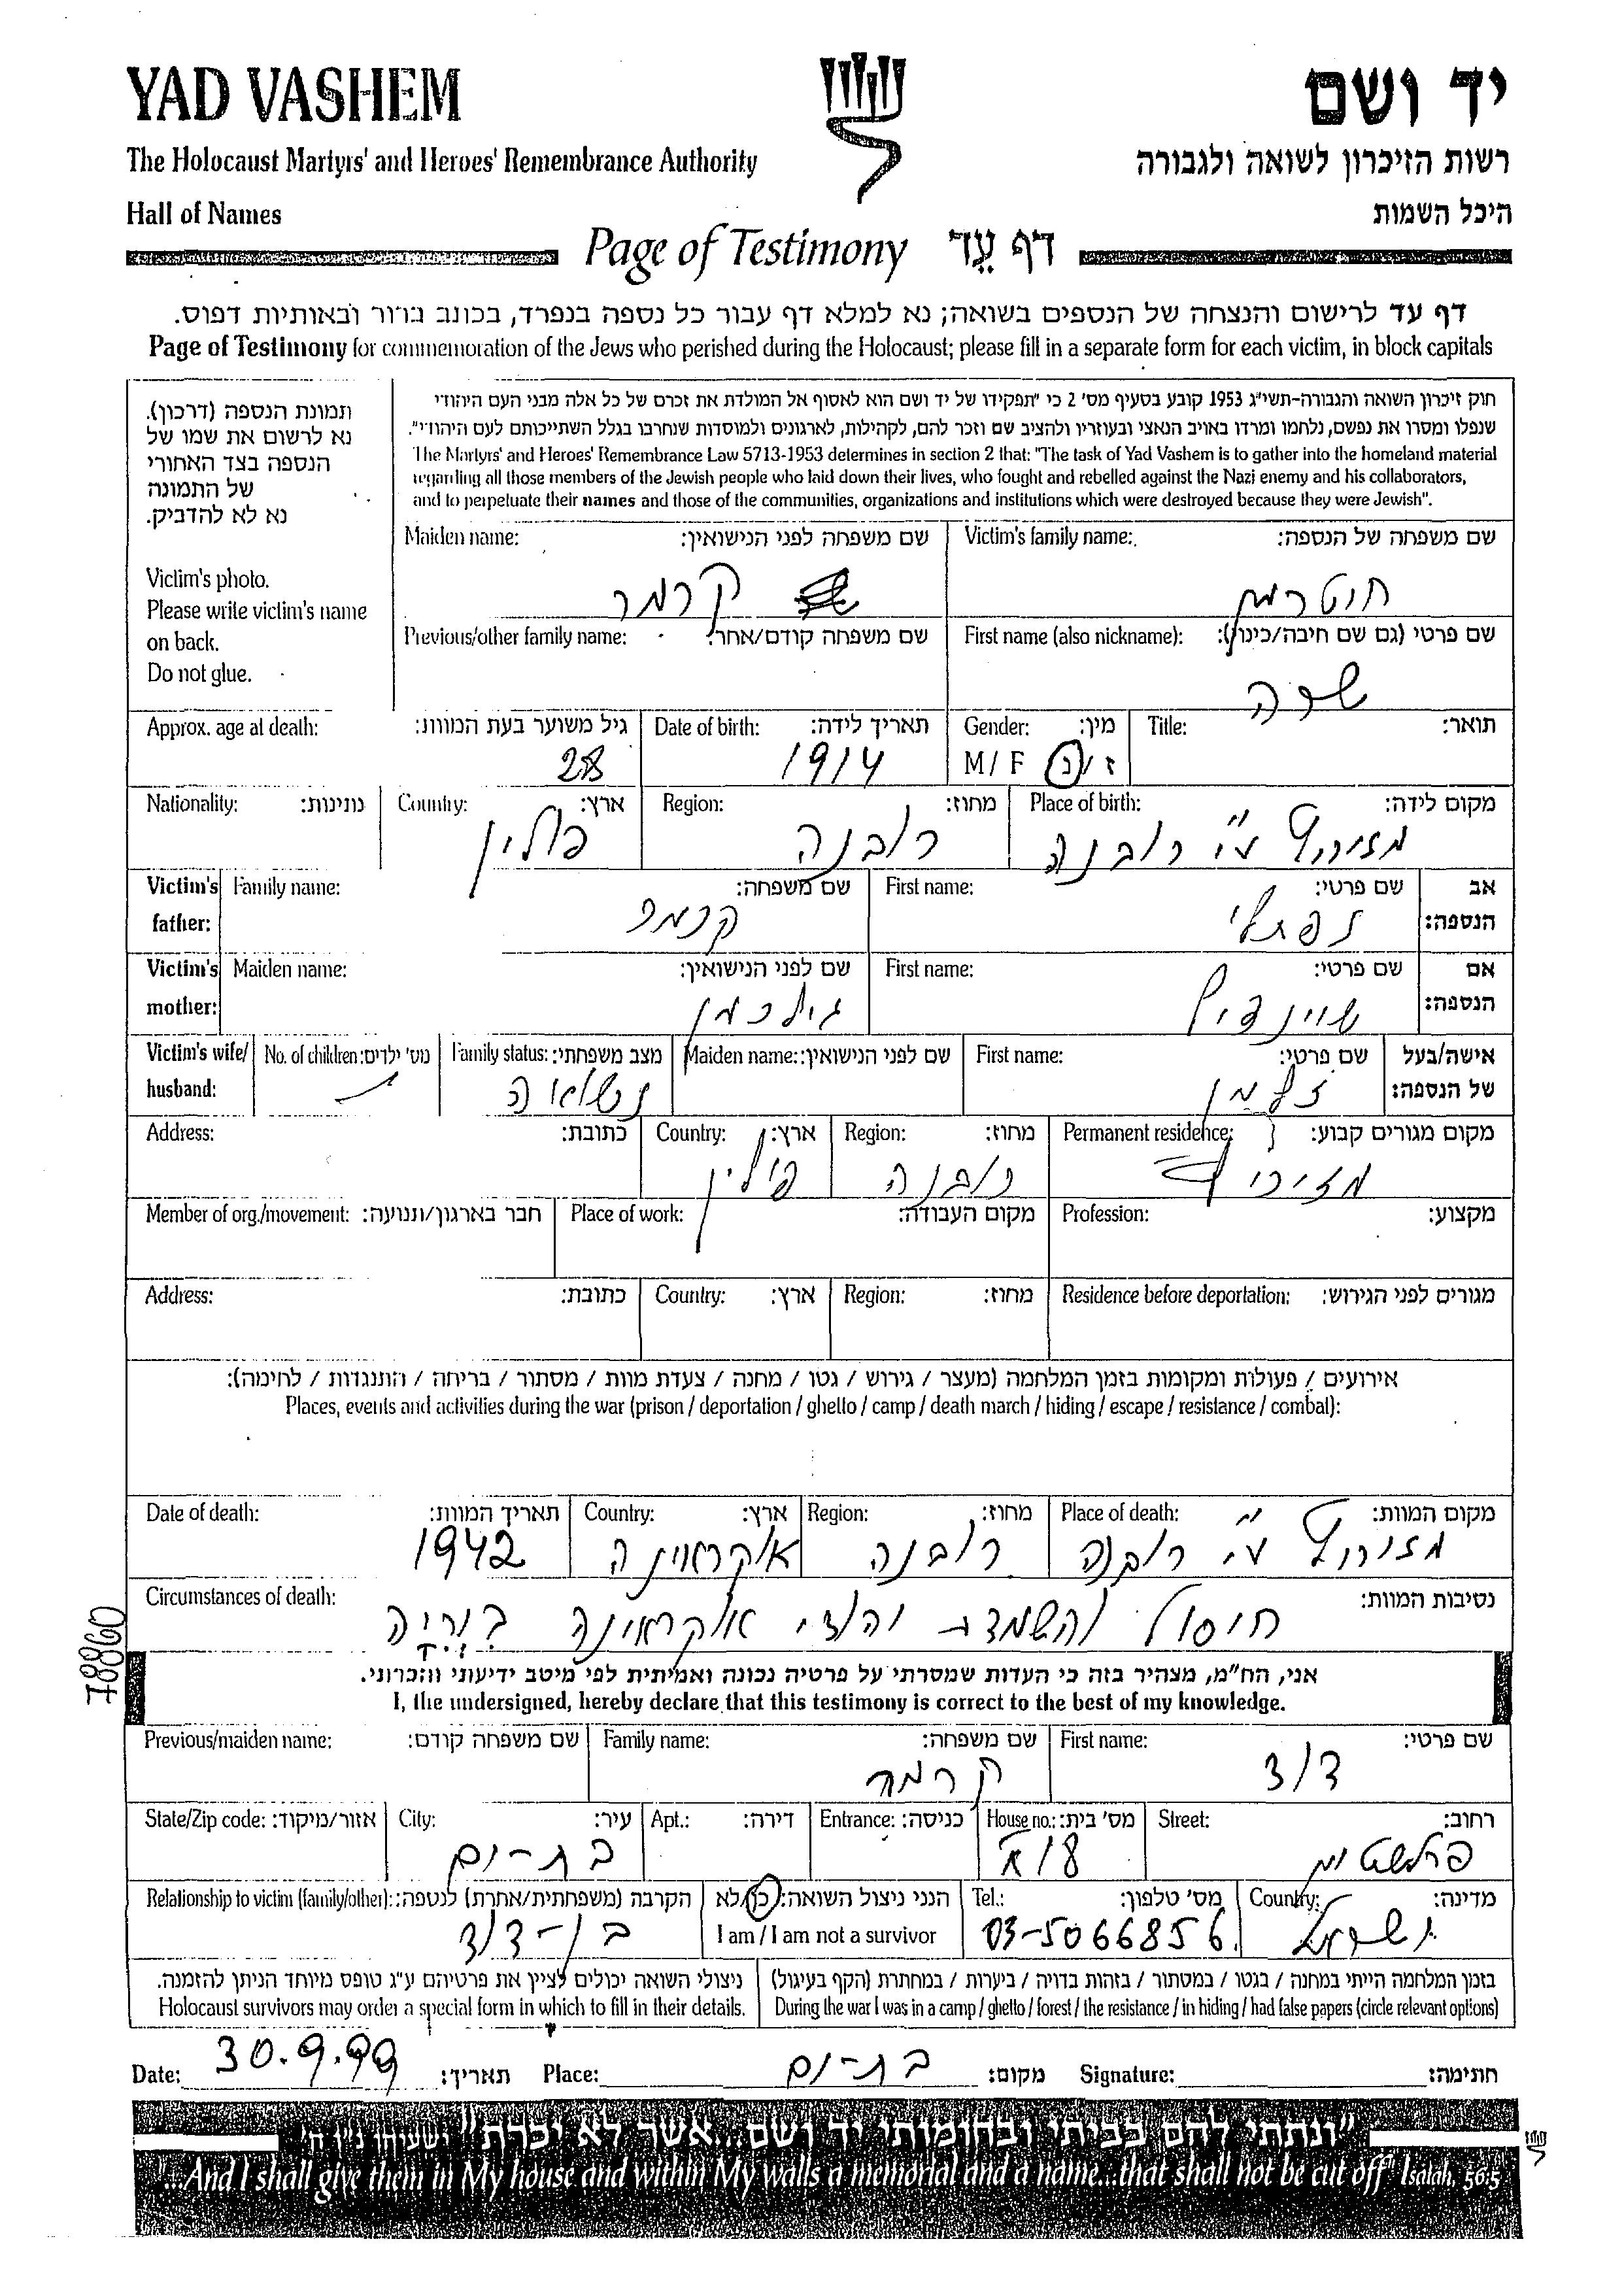 YAD VASHEM
יד ושם
The Holocaust Martyrs' and Heroes' Remembrance Authority
רשות הזיכרון לשואה ולגבורה
Hall of Names
היכל השמות
Page of Testimony דף עֵד
דף עד לרישום והנצחה של הנספים בשואה; נא למלא דף עבור כל נספה בנפרד, בכתב ברור ובאותיות דפוס.
Page of Testimony for commemoration of the Jews who perished during the Holocaust; please fill in a separate form for each victim, in block capitals
תמונת הנספה (דרכון).
נא לרשום את שמו של
הנספה בצד האחורי
של התמונה
נא לא להדביק.
Victim's photo.
Please write victim's name
on back.
Do not glue.
חוק זיכרון השואה והגבורה-תשי"ג 1953 קובע בסעיף מס' 2 כי "תפקידו של יד ושם הוא לאסוף אל המולדת את זכרם של כל אלה מבני העם היהודי
שנפלו ומסרו את נפשם, נלחמו ומרדו באויב הנאצי ובעוזריו ולהציב שם וזכר להם, לקהילות, לארגונים ולמוסדות שנחרבו בגלל השתייכותם לעם היהודי".
The Martyrs' and Heroes' Remembrance Law 5713-1953 determines in section 2 that: "The task of Yad Vashem is to gather into the homeland material
regarding all those members of the Jewish people who laid down their lives, who fought and rebelled against the Nazi enemy and his collaborators,
and to perpetuate their names and those of the communities, organizations and institutions which were destroyed because they were Jewish".
Victim's family name: שם משפחה של הנספה:
חוטרמן
Maiden name: שם משפחה לפני הנישואין:
קרמר
First name (also nickname): שם פרטי (גם שם חיבה/כינוי):
שרה
Previous/other family name: שם משפחה קודם/אחר:
Title: תואר:
Gender: מין:
M / F ז / נ
Date of birth: תאריך לידה:
1914
Approx. age at death: גיל משוער בעת המוות:
28
Place of birth: מקום לידה:
מזיריץ ע"י רובנה
Region: מחוז:
רובנה
Country: ארץ:
פולין
Nationality: נתינות:
Victim's father: אב הנספה:
First name: שם פרטי:
נפתלי
Family name: שם משפחה:
קרמר
Victim's mother: אם הנספה:
First name: שם פרטי:
שיינדיל
Maiden name: שם לפני הנישואין:
גילרמן
Victim's wife/ husband: אישה/בעל של הנספה:
First name: שם פרטי:
זלמן
Maiden name: שם לפני הנישואין:
Family status: מצב משפחתי:
נשואה
No. of children: מס' ילדים:
Permanent residence: מקום מגורים קבוע:
מזיריץ
Region: מחוז:
רובנה
Country: ארץ:
פולין
Address: כתובת:
Profession: מקצוע:
Place of work: מקום העבודה:
Member of org./movement: חבר בארגון/תנועה:
Residence before deportation: מגורים לפני הגירוש:
Region: מחוז:
Country: ארץ:
Address: כתובת:
אירועים / פעולות ומקומות בזמן המלחמה (מעצר / גירוש / גטו / מחנה / צעדת מוות / מסתור / בריחה / התנגדות / לחימה):
Places, events and activities during the war (prison / deportation / ghetto / camp / death march / hiding / escape / resistance / combat):
Place of death: מקום המוות:
מזיריץ ע"י רובנה
Region: מחוז:
רובנה
Country: ארץ:
אוקראינה
Date of death: תאריך המוות:
1942
Circumstances of death: נסיבות המוות:
חוסול והשמדת
78860
אני, הח"מ, מצהיר בזה כי העדות שמסרתי על פרטיה נכונה ואמיתית לפי מיטב ידיעתי והכרתי.
I, the undersigned, hereby declare that this testimony is correct to the best of my knowledge.
First name: שם פרטי:
דוד
Family name: שם משפחה:
קרמר
Previous/maiden name: שם משפחה קודם:
Street: רחוב:
House no.: מס' בית:
Entrance: כניסה:
Apt.: דירה:
City: עיר:
בת-ים
State/Zip code: אזור/מיקוד:
Country: מדינה:
ישראל
Tel.: מס' טלפון:
03-5066856
הנני ניצול השואה: כן/לא
I am / I am not a survivor
Relationship to victim (family/other): הקרבה (משפחתית/אחרת) לנספה:
בן-דוד
בזמן המלחמה הייתי במחנה / בגטו / במסתור / בזהות בדויה / ביערות / במחתרת (הקף בעיגול)
During the war I was in a camp / ghetto / forest / the resistance / in hiding / had false papers (circle relevant options)
ניצולי השואה יכולים לציין את פרטיהם ע"ג טופס מיוחד הניתן להזמנה.
Holocaust survivors may order a special form in which to fill in their details.
Date: 30.9.99 תאריך: Place: בת-ים מקום: Signature: חתימה:
"ונתתי להם בביתי ובחומותי יד ושם...אשר לא יכרת" ישעיהו נ"ו ה'
"...And I shall give them in My house and within My walls a memorial and a name...that shall not be cut off" Isaiah, 56:5